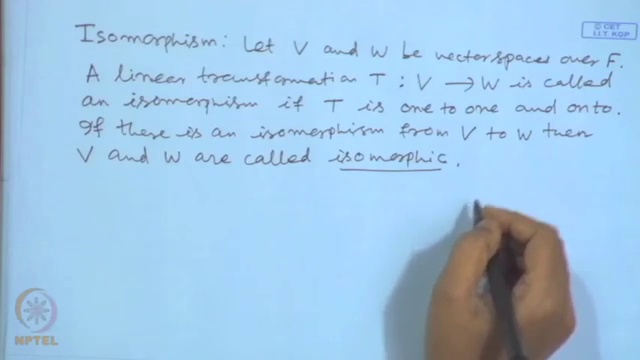 © CET
I.I.T. KGP
Isomorphism: Let V and W be vector spaces over F.
A linear transformation T : V → W is called
an isomorphism if T is one to one and onto.
If there is an isomorphism from V to W then
V and W are called isomorphic.
NPTEL